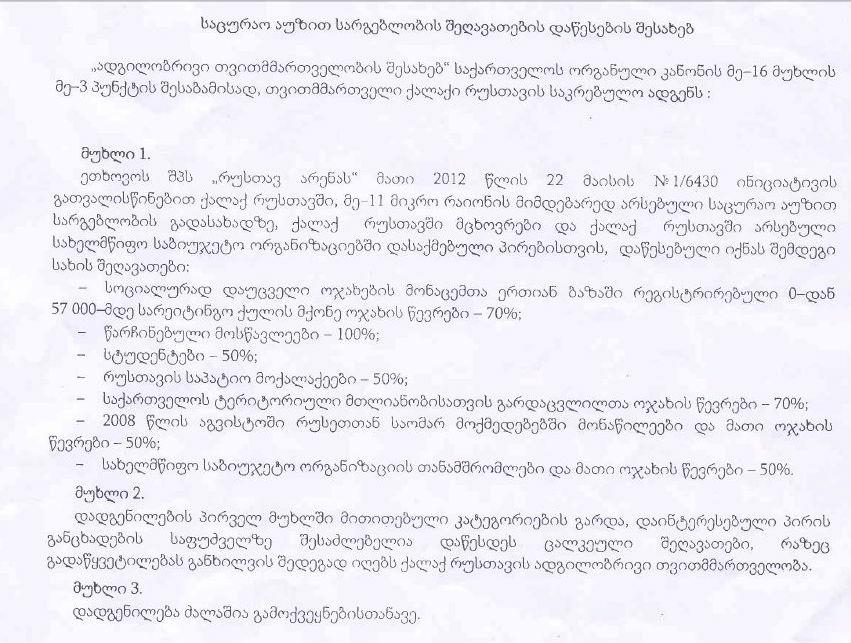 საცურაო აუზით სარგებლობის შეღავათების დაწესების შესახებ
„ადგილობრივი თვითმმართველობის შესახებ“ საქართველოს ორგანული კანონის მე–16 მუხლის
მე–3 პუნქტის შესაბამისად, თვითმმართველი ქალაქი რუსთავის საკრებულო ადგენს :
მუხლი 1.
ეთხოვოს შპს „რუსთავ არენას“ მათი 2012 წლის 22 მაისის №1/6430 ინიციატივის
გათვალისწინებით ქალაქ რუსთავში, მე–11 მიკრო რაიონის მიმდებარედ არსებული საცურაო აუზით
სარგებლობის გადასახადზე, ქალაქ რუსთავში მცხოვრები და ქალაქ რუსთავში არსებული
სახელმწიფო საბიუჯეტო ორგანიზაციებში დასაქმებული პირებისთვის, დაწესებული იქნას შემდეგი
სახის შეღავათები:
– სოციალურად დაუცველი ოჯახების მონაცემთა ერთიან ბაზაში რეგისტრირებული 0–დან
57 000–მდე სარეიტინგო ქულის მქონე ოჯახის წევრები – 70%;
– წარჩინებული მოსწავლეები – 100%;
– სტუდენტები – 50%;
– რუსთავის საპატიო მოქალაქეები – 50%;
– საქართველოს ტერიტორიული მთლიანობისათვის გარდაცვლილთა ოჯახის წევრები – 70%;
– 2008 წლის აგვისტოში რუსეთთან საომარ მოქმედებებში მონაწილეები და მათი ოჯახის
წევრები – 50%;
– სახელმწიფო საბიუჯეტო ორგანიზაციის თანამშრომლები და მათი ოჯახის წევრები – 50%.
მუხლი 2.
დადგენილების პირველ მუხლში მითითებული კატეგორიების გარდა, დაინტერესებული პირის
განცხადების საფუძველზე შესაძლებელია დაწესდეს ცალკეული შეღავათები, რაზეც
გადაწყვეტილებას განხილვის შედეგად იღებს ქალაქ რუსთავის ადგილობრივი თვითმმართველობა.
მუხლი 3.
დადგენილება ძალაშია გამოქვეყნებისთანავე.